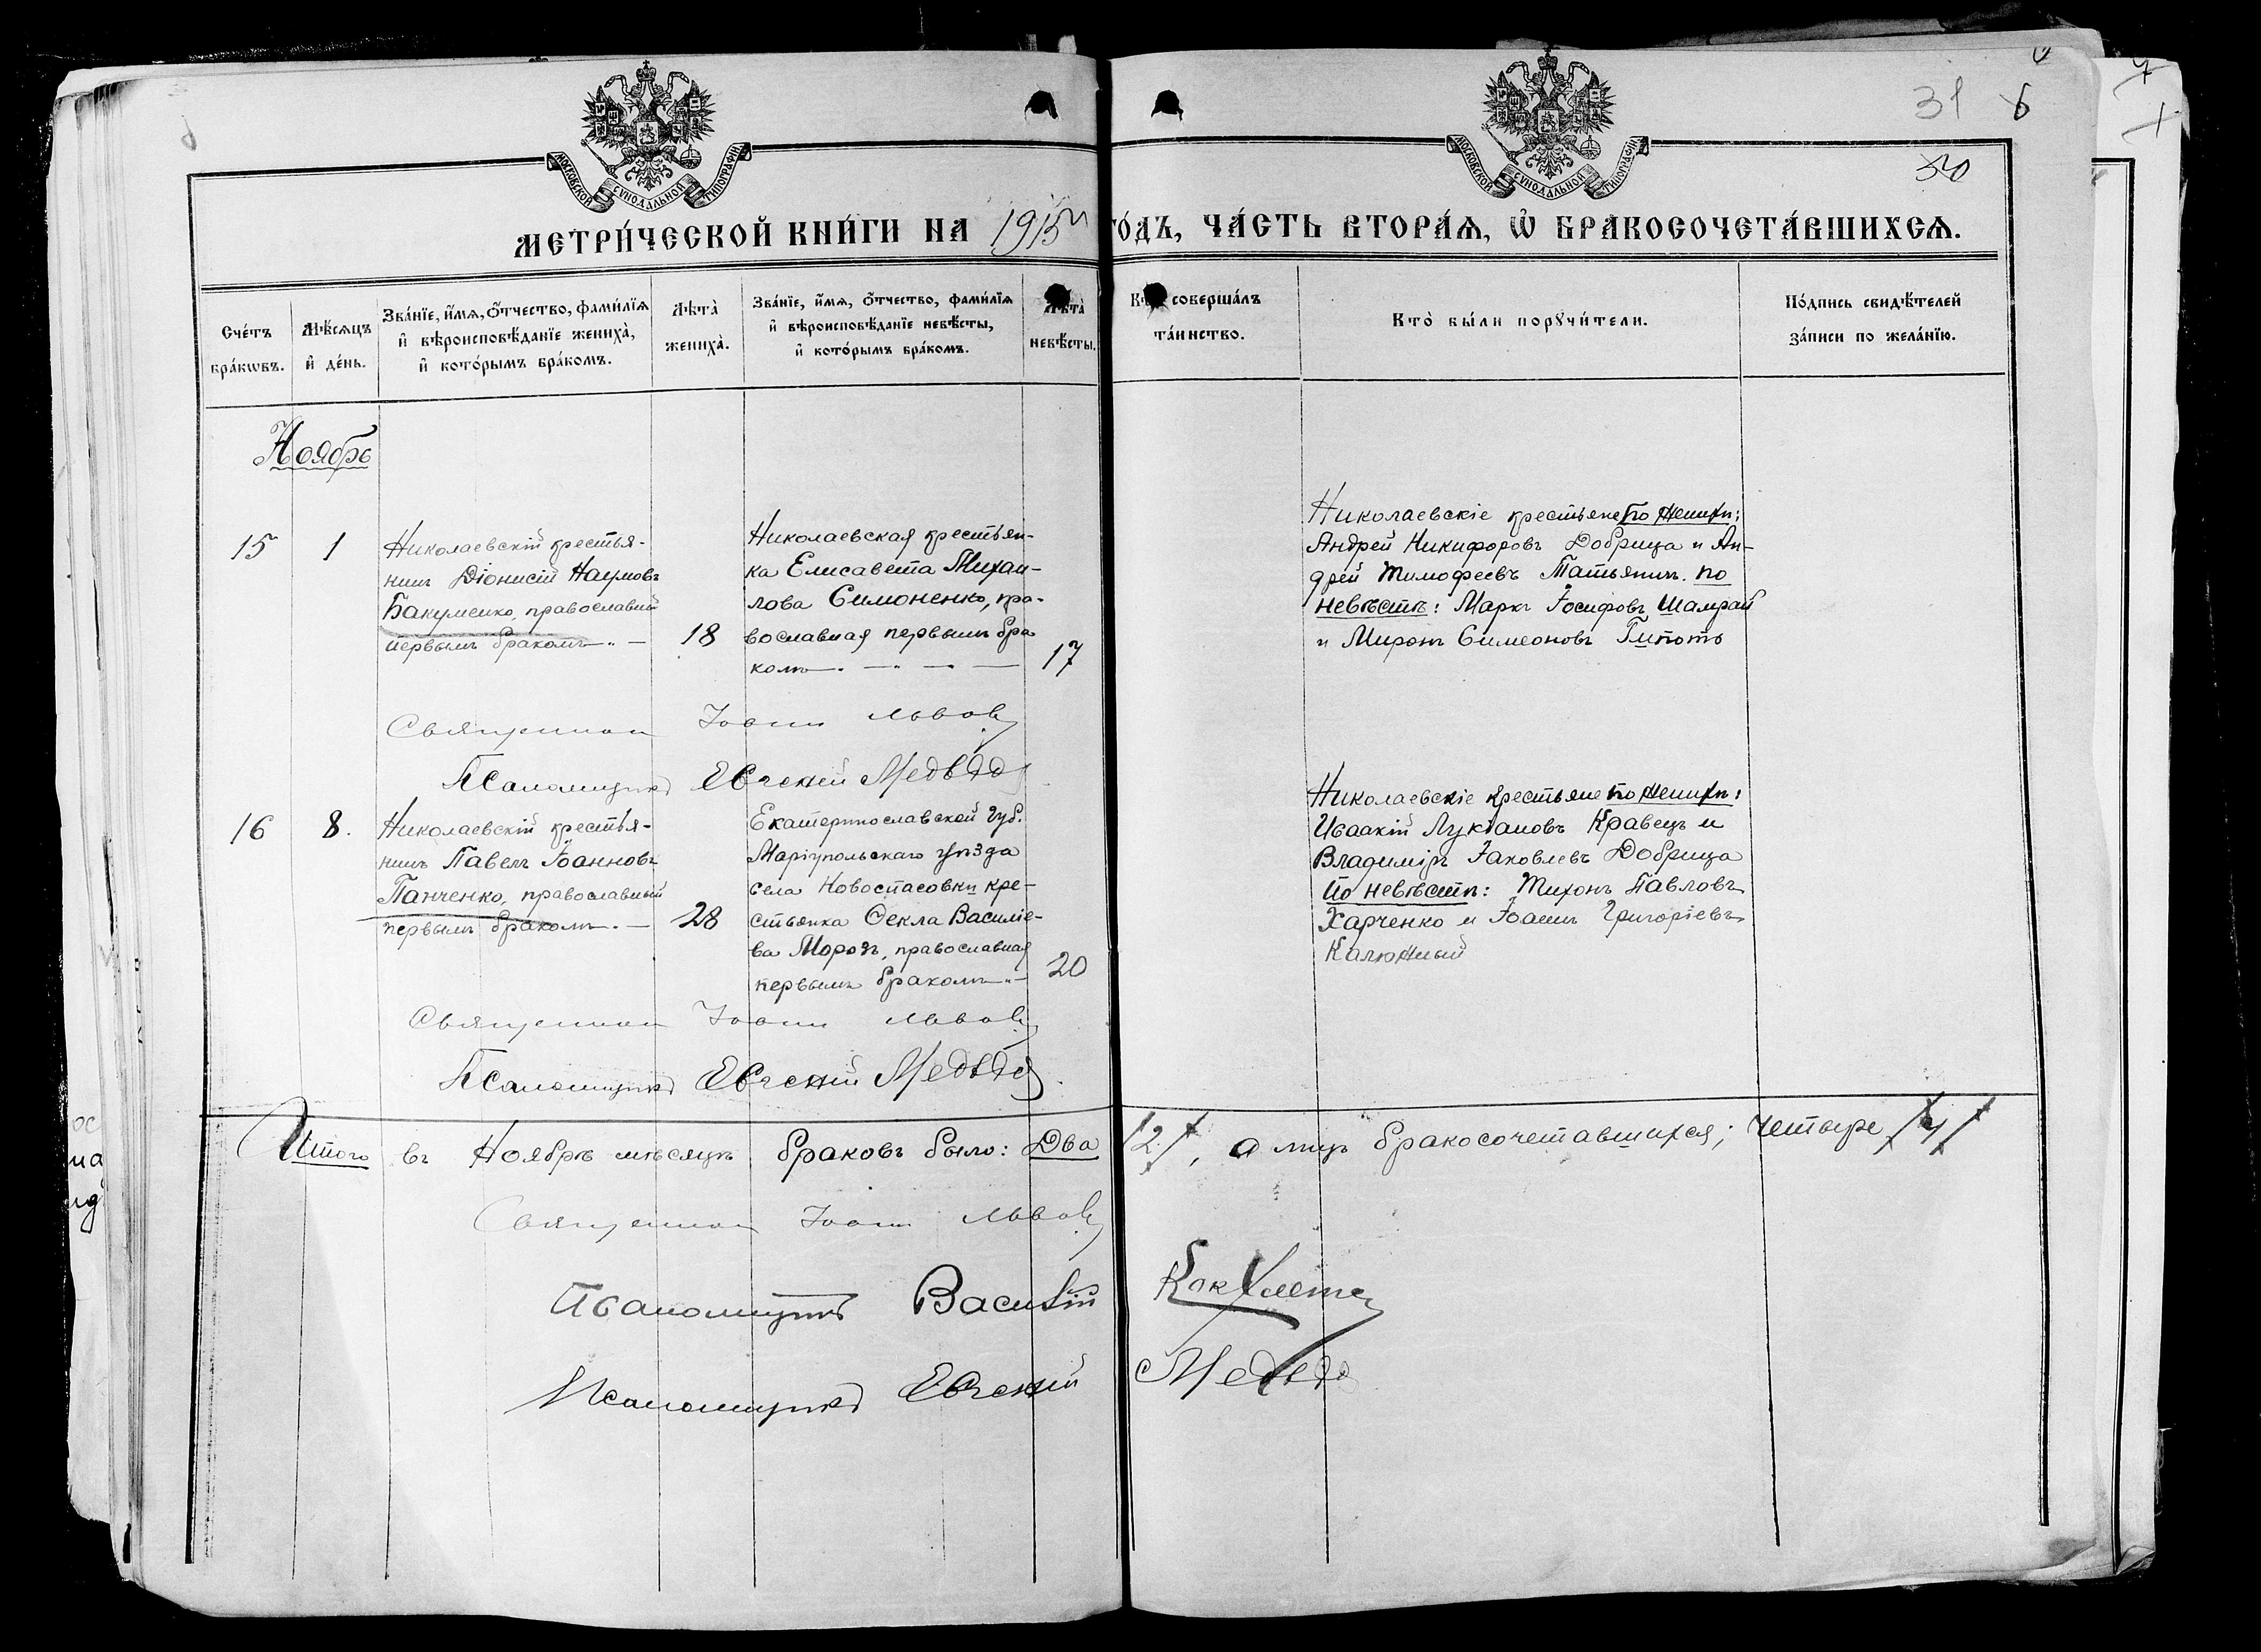 МОСКОВСКОЙ СѴНОДАЛЬНОЙ ТИПОГРАФІИ
МОСКОВСКОЙ СѴНОДАЛЬНОЙ ТИПОГРАФІИ
31 6
30
МЕТРИ́ЧЕСКОЙ КНИ́ГИ НА 1915 ГО́ДЪ, ЧА́СТЬ ВТОРА́Ѧ, Ѡ҆ БРАКОСОЧЕТА́ВШИХСѦ.
Сче́тъ бра́кѡвъ.
Мѣ́сѧцъ и҆ де́нь.
Зва́нїе, и҆́мѧ, ѻ҆́тчество, фами́лїѧ и҆ вѣроисповѣ́данїе жениха̀, и҆ кото́рымъ бра́комъ.
Лѣта̀ жениха̀.
Зва́нїе, и҆́мѧ, ѻ҆́тчество, фами́лїѧ и҆ вѣроисповѣ́данїе невѣ́сты, и҆ кото́рымъ бра́комъ.
Лѣта̀ невѣ́сты.
Кто̀ соверша́лъ та́инство.
Кто̀ бы́ли порꙋчи́тели.
По́дпись свидѣ́телей за́писи по жела́нїю.
Ноябрь
15
1
Николаевскій крестья-
нинъ Діонисій Наумовъ
Бакуменко, православный
первымъ бракомъ
18
Николаевская крестьян-
ка Елисавета Михаи-
лова Симоненко, пра-
вославная первымъ бра
комъ
17
Николаевскіе крестьяне по женихѣ:
Андрей Никифоровъ Добрица и Ан-
дрей Тимофеевъ Татьянин. по
невѣстѣ: Маркъ Іосифовъ Шамрай
и Миронъ Симеоновъ Гипоть
Священник Іоанн Львовъ
Псаломщикъ Евгений Медвѣдь
16
8.
Николаевскій крестья-
нинъ Павелъ Іоанновъ
Панченко, православный
первымъ бракомъ.
28
Екатеринославской губ.
Маріупольскаго уѣзда
села Новоспасовки кре-
стьянка Ѳекла Василіе-
ва Морозъ, православная
первымъ бракомъ
20
Николаевскіе крестьяне по женихѣ:
Исаакій Лукіановъ Кравецъ и
Владиміръ Іаковлевъ Добрица
По невѣстѣ: Тихонъ Павловъ
Харченко и Іоаннъ Григоріевъ
Калюжный
Священник Іоанн Львовъ
Псаломщикъ Евгений Медвѣдь
Итого въ Ноябрѣ мѣсяцѣ браковъ было: Два /2/, а лицъ бракосочетавшихся; четыре /4/
Священник Іоанн Львовъ
Псаломщикъ Василій
Псаломщикъ Евгений Медвѣдь